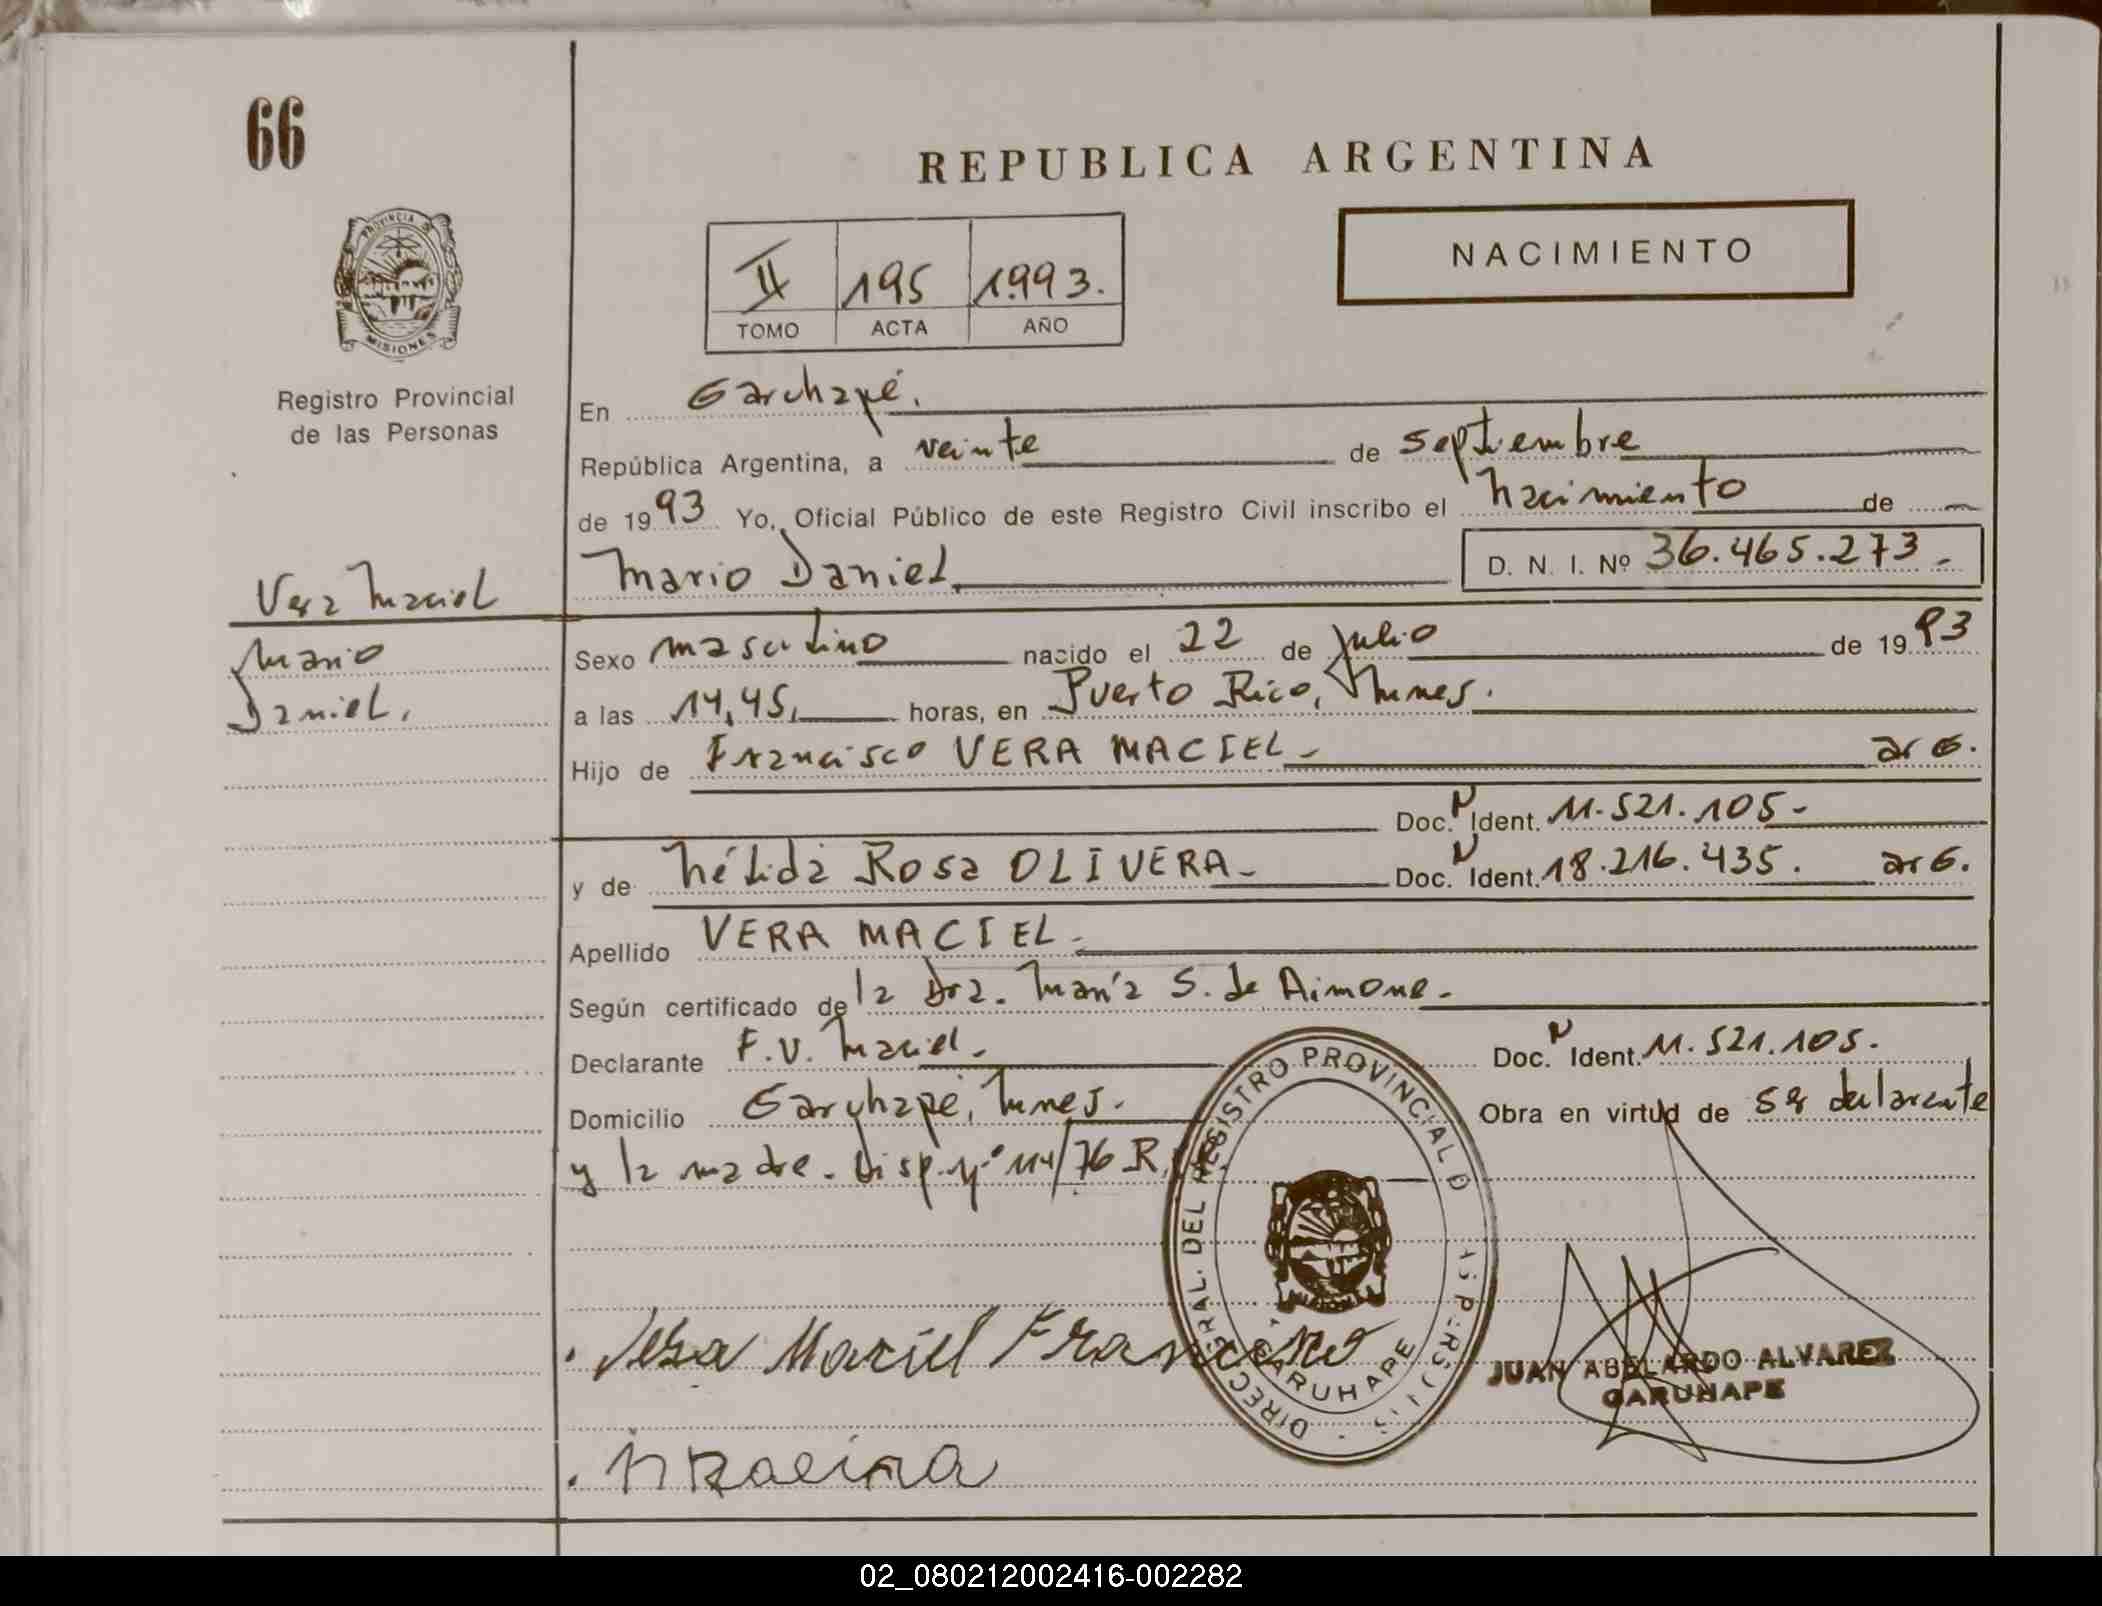 66
REPUBLICA ARGENTINA
NACIMIENTO
II 195 1993.
TOMO ACTA AÑO
PROVINCIA DE
MISIONES
Registro Provincial
de las Personas
En Garuhapé.
República Argentina, a veinte de septiembre
de 1993 Yo, Oficial Público de este Registro Civil inscribo el Nacimiento de
Mario Daniel. D. N. I. Nº 36.465.273.-
Vera Maciel
Mario
Daniel.
Sexo masculino nacido el 22 de Julio de 1993
a las 14,45, horas, en Puerto Rico, Mnes.
Hijo de Francisco VERA MACIEL- arg.
Doc. N Ident. 11.521.105-
y de Nélida Rosa OLIVERA- Doc. N Ident. 18.216.435. arg.
Apellido VERA MACIEL-
Según certificado de la Dra. María S. de Aimone-
Declarante F.V. Maciel- Doc. N Ident. 11.521.105.
Domicilio Garuhapé, Mnes. Obra en virtud de ser declarante
y la madre. Disp. Nº 114/76 R.
DIREC. PRAL. DEL REGISTRO PROVINCIAL D AS PERS
GARUHAPE
Vera Maciel Francisco
JUAN ABELARDO ALVAREZ
GARUHAPE
02_080212002416-002282